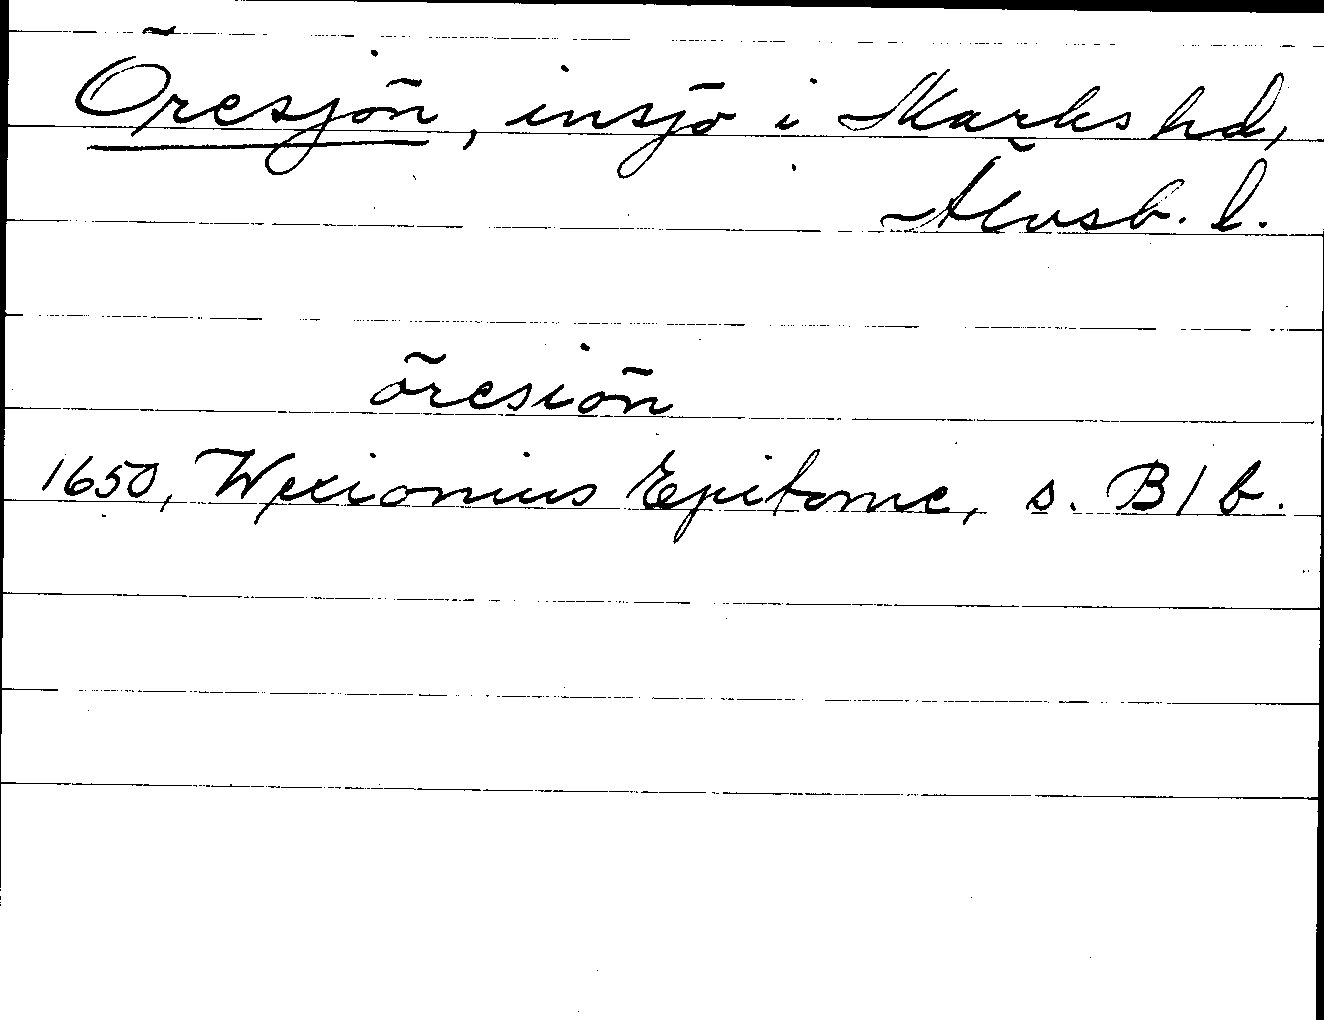 Öresjön, insjö i Marks hd,
Älvsb. l.
öresiön
1650, Wexionius Epitome, s. B1b.